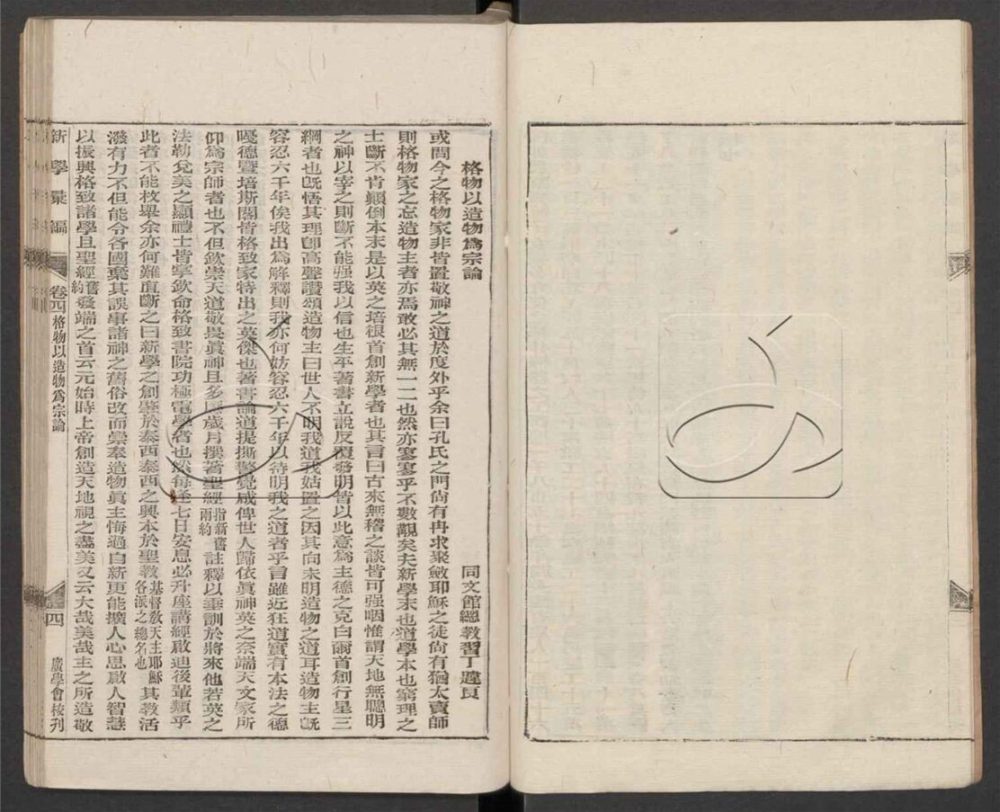 格物以造物爲宗論
同文館總教習丁韙良
或問今之格物家非皆置敬神之道於度外乎余曰孔氏之門尙有冉求聚斂耶穌之徒尙有猶太賣師
則格物家之忘造物主者亦焉敢必其無一二也然亦寥寥乎不數覯矣夫新學末也道學本也窮理之
士斷不肯顚倒本末是以英之培根首創新學者也其言曰古來無稽之談皆可强咽惟謂天地無聰明
之神以宰之則斷不能强我以信也生平著書立說反覆發明皆以此意爲主德之克白爾首創行星三
綱者也旣悟其理卽高聲讚頌造物主曰世人不明我道我姑置之因其向未明造物之道耳造物主旣
容忍六千年俟我出爲解釋則我亦何妨容忍六千年以待明我之道者乎言雖近狂道實有本法之德
嘎德暨培斯闊皆格致家特出之英傑也著書論道提撕警覺咸俾世人歸依眞神英之奈端天文家所
仰爲宗師者也不但欽崇天道敬畏眞神且多歷歲月撰著聖經指新舊兩約註釋以垂訓於將來他若英之
法勒兌美之顯禮士皆掌欽命格致書院功極電學者也然每逢七日安息必升座講經啟迪後輩類乎
此者不能枚舉余亦何難直斷之曰新學之創鑒於泰西泰西之興本於聖教基督敎天主耶穌各派之總名也其教活
潑有力不但能令各國棄其誤事諸神之舊俗改而崇奉造物眞主悔過自新更能擴人心思啟人智慧
以振興格致諸學且聖經舊約發端之首云元始時上帝創造天地視之盡美又云大哉美哉主之所造敬
新學彙編
卷四格物以造物爲宗論
四
廣學會校刊